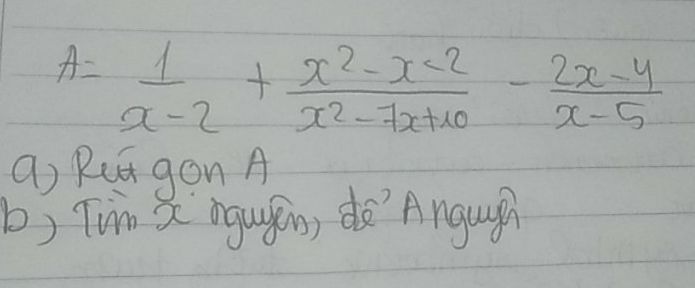 A = 1/(x - 2) + (x² - x - 2)/(x² - 7x + 10) - (2x - 4)/(x - 5)
a) Rút gọn A
b) Tìm x nguyên, để A nguyên